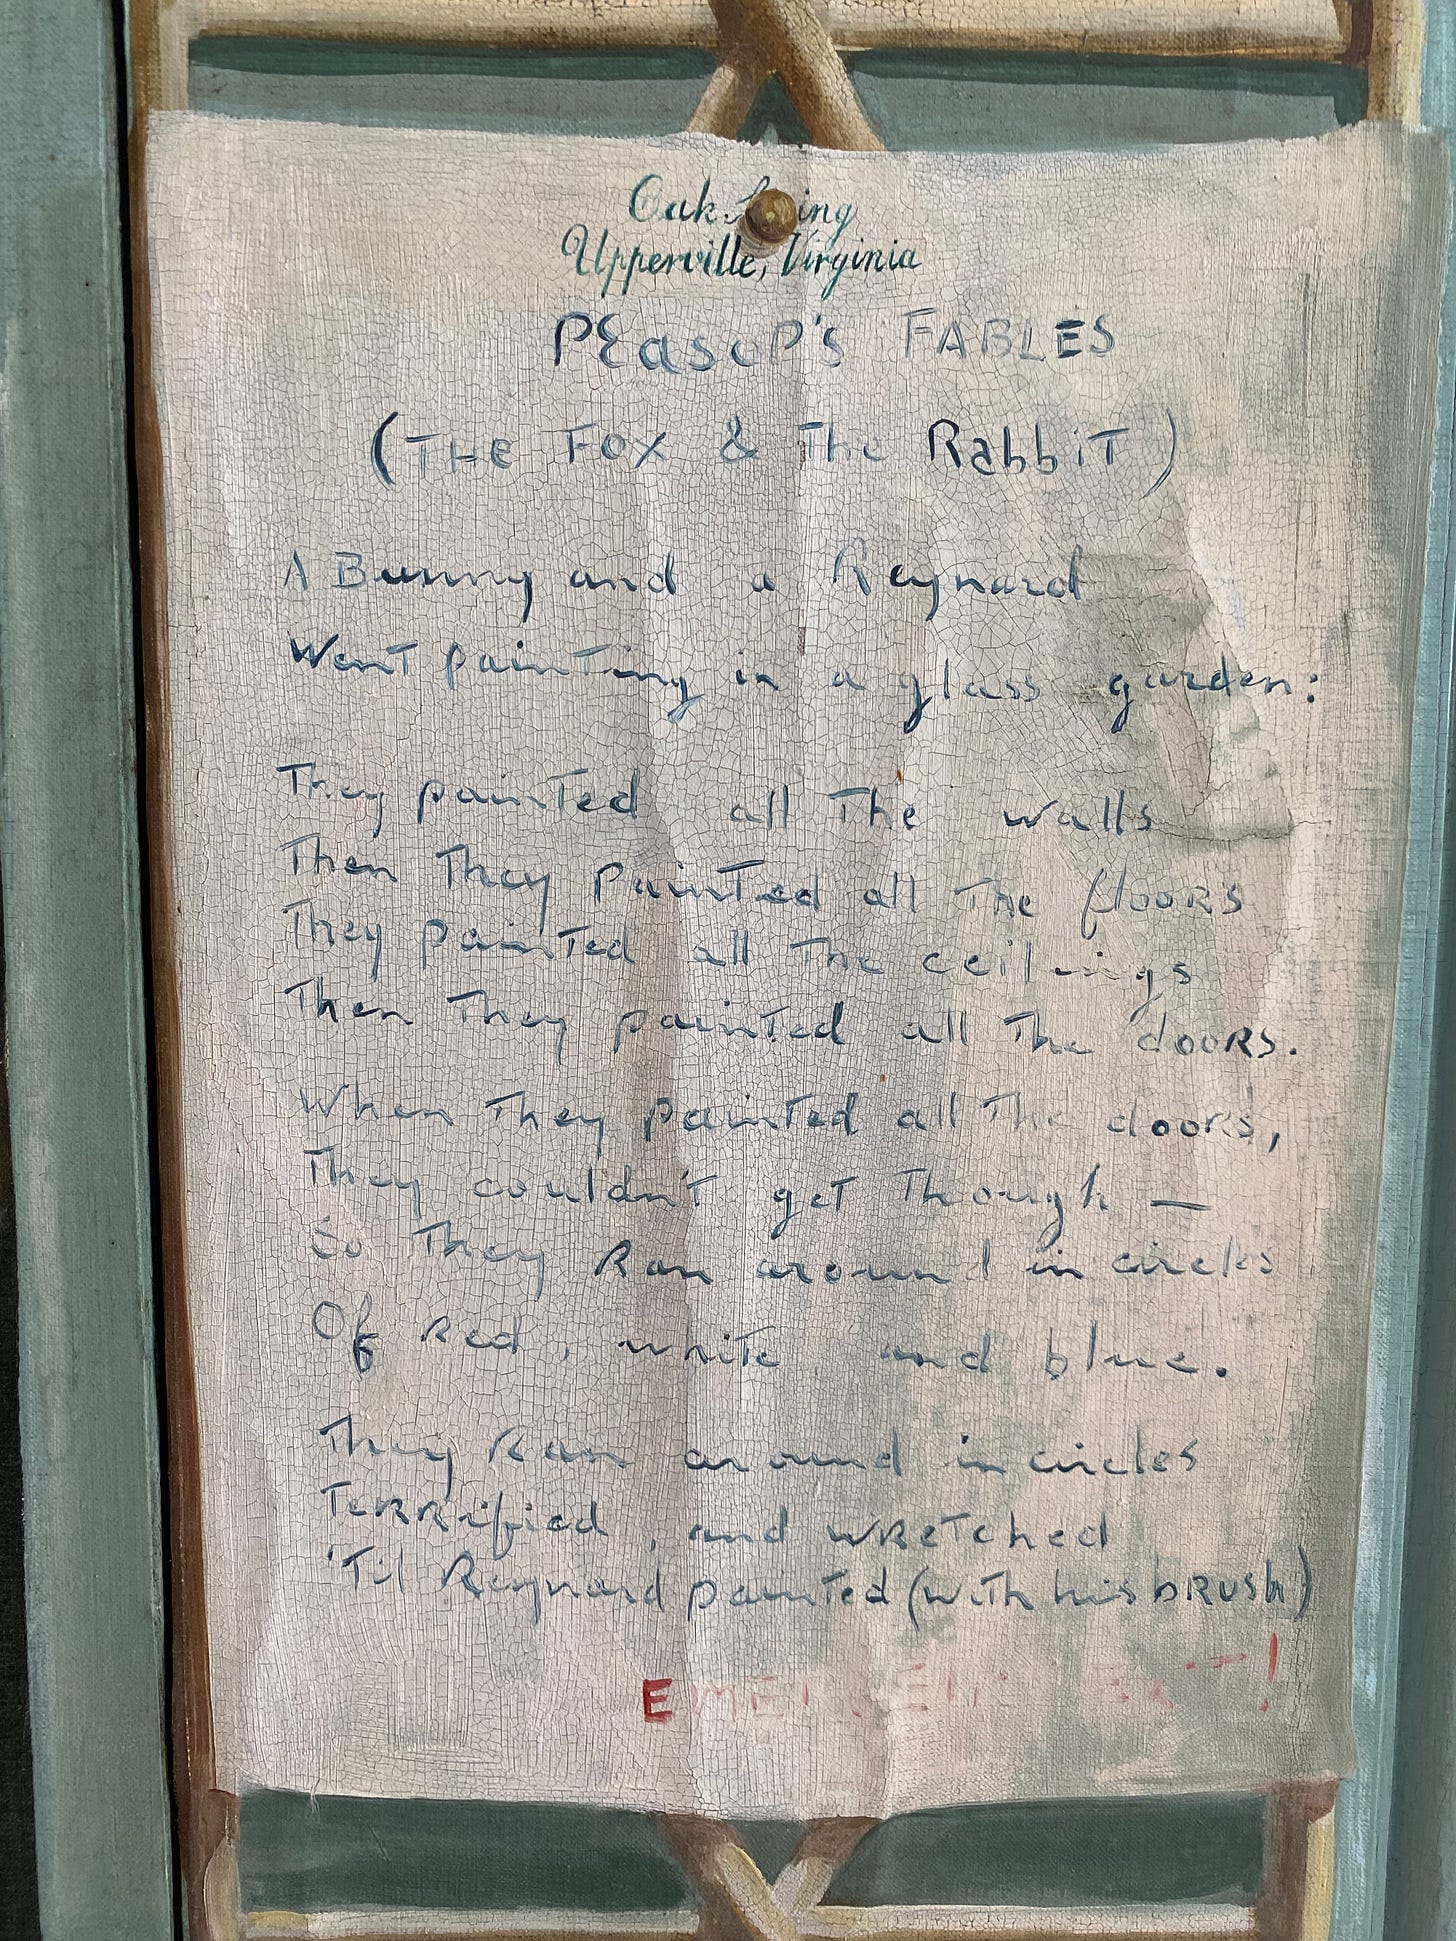 Oak Spring
Upperville, Virginia
PEasoP's FABLES
(THE FOX & The RabbiT)
A Bunny and a Reynard
Went painting in a glass garden:
They painted all The walls
Then They Painted all The floors
They painted all The ceilings
Then They painted all The dooRs.
When They painted all The doors,
They couldn't get Though —
So They Ran around in circles
Of Red, white and blue.
They Ran around in circles
TeRRified, and wRetched
'Til Reynard painted (with his bRUSh)
EMERGENCY EXIT!